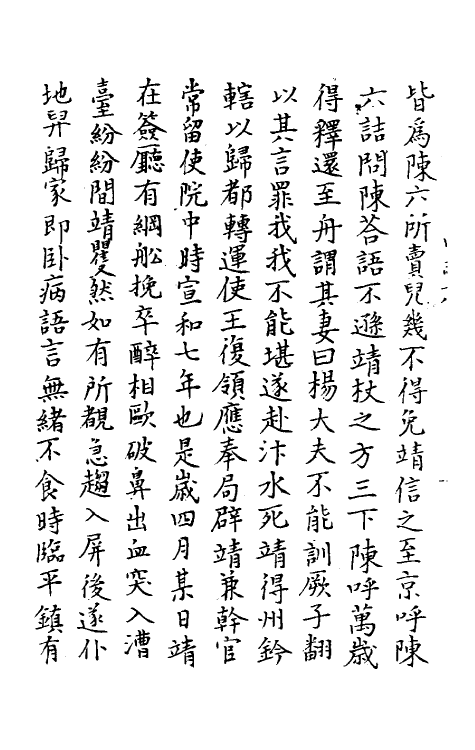 皆爲陳六所賣兒幾不得免靖信之至京呼陳
六詰問陳荅語不遜靖杖之方三下陳呼萬歲
得釋還至舟謂其妻曰楊大夫不能訓厥子翻
以其言罪我我不能堪遂赴汴水死靖得州鈐
轄以歸都轉運使王復領應奉局辟靖兼幹官
常留使院中時宣和七年也是歲四月某日靖
在簽廳有綱舩挽卒醉相歐破鼻出血突入漕
臺紛紛間靖瞿然如有所覩急趨入屏後遂仆
地舁歸家即卧病語言無緒不食時臨平鎮有